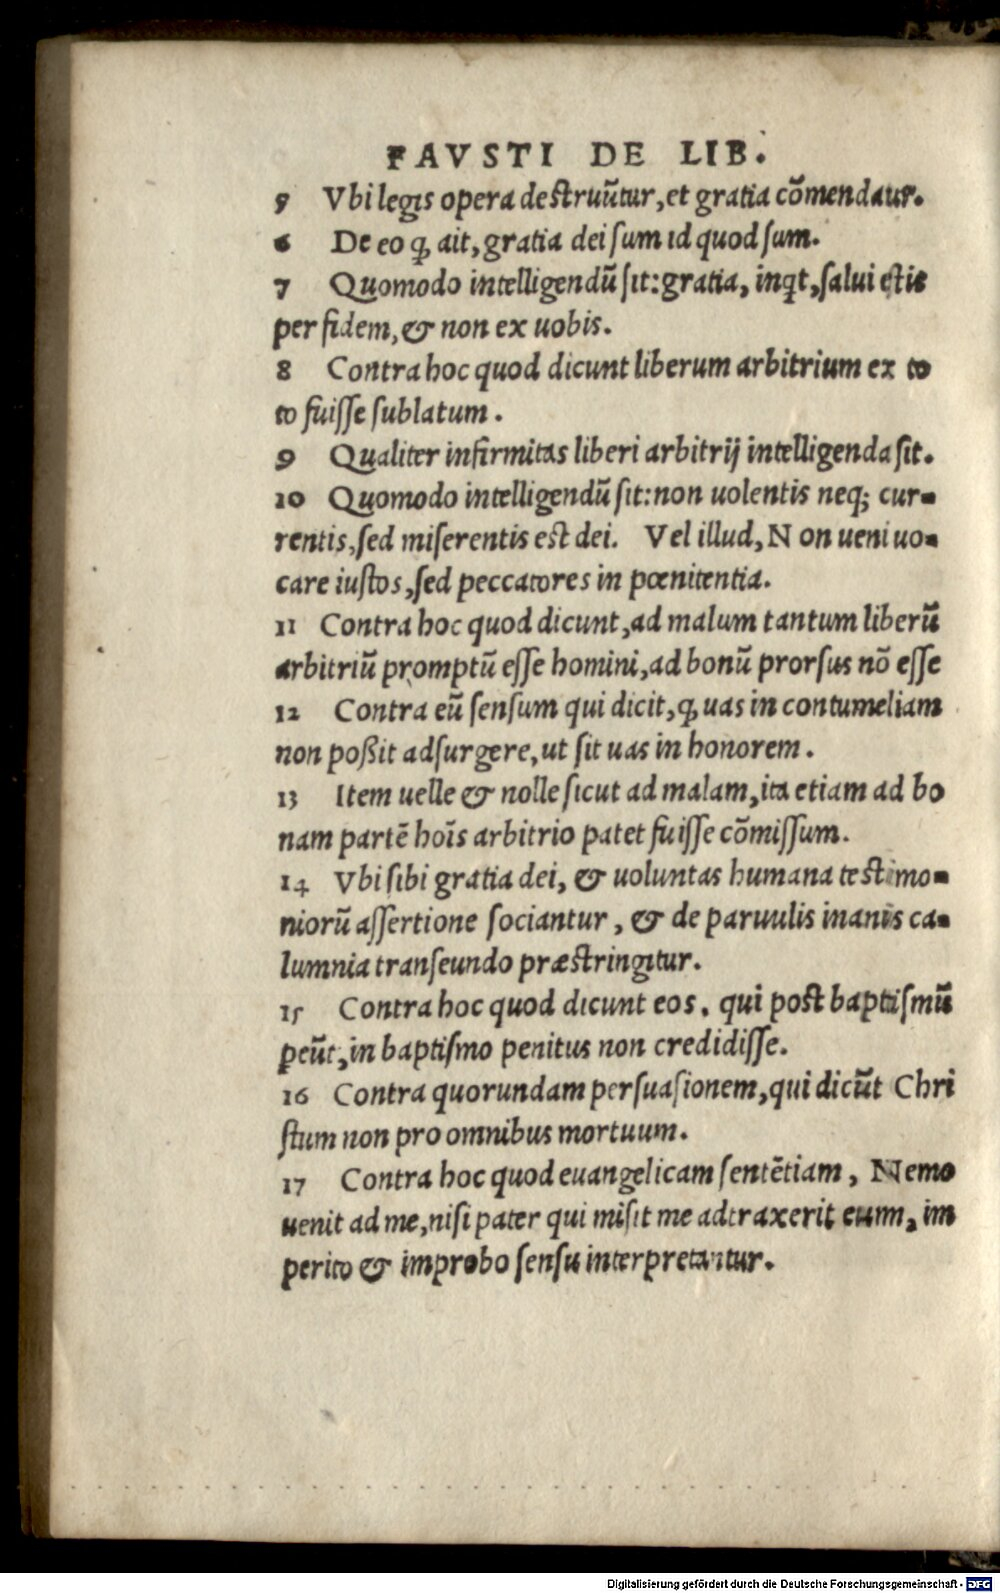 FAVSTI DE LIB.
5 Vbi legis opera destruũtur, et gratia cõmendatur.
6 De eo ꝙ ait, gratia dei sum id quod sum.
7 Quomodo intelligendũ sit: gratia, inqt, salui estis
per fidem, & non ex uobis.
8 Contra hoc quod dicunt liberum arbitrium ex to
to fuisse sublatum.
9 Qualiter infirmitas liberi arbitrij intelligenda sit.
10 Quomodo intelligendũ sit: non uolentis neq; cur-
rentis, sed miserentis est dei. Vel illud, Non ueni uo-
care iustos, sed peccatores in pœnitentia.
11 Contra hoc quod dicunt, ad malum tantum liberũ
arbitriũ promptũ esse homini, ad bonũ prorsus nõ esse
12 Contra eũ sensum qui dicit, ꝙ uas in contumeliam
non poßit adsurgere, ut sit uas in honorem.
13 Item uelle & nolle sicut ad malam, ita etiam ad bo
nam partẽ hoĩs arbitrio patet fuisse cõmissum.
14 Vbi sibi gratia dei, & uoluntas humana testimo-
niorũ assertione sociantur, & de paruulis inanis ca-
lumnia transeundo præstringitur.
15 Contra hoc quod dicunt eos, qui post baptismũ
peũt, in baptismo penitus non credidisse.
16 Contra quorundam persuasionem, qui dicũt Chri
stum non pro omnibus mortuum.
17 Contra hoc quod euangelicam sentẽtiam, Nemo
uenit ad me, nisi pater qui misit me adtraxerit eum, im
perito & improbo sensu interpretantur.
Digitalisierung gefördert durch die Deutsche Forschungsgemeinschaft - DFG